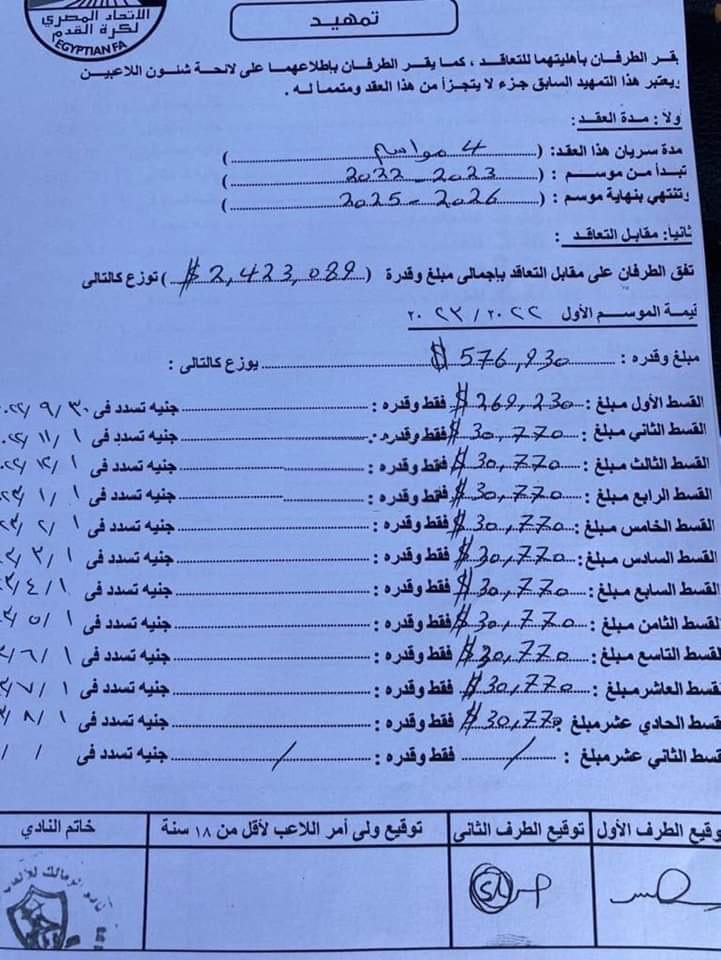 الاتحاد المصري
لكرة القدم
EGYPTIAN FA
تمهيد
يقر الطرفان بأهليتهما للتعاقد ، كما يقر الطرفان بإطلاعهما على لائحة شئون اللاعبين
يعتبر هذا التمهيد السابق جزء لا يتجزأ من هذا العقد ومتمما له .
ولا : مدة العقد :
مدة سريان هذا العقد : ( 4 مواسم )
تبدأ من موسم : ( 2022 - 2023 )
وتنتهي بنهاية موسم : ( 2025 - 2026 )
ثانيا : مقابل التعاقد :
تفق الطرفان على مقابل التعاقد بإجمالى مبلغ وقدرة ( $ 2,423,089 ) توزع كالتالى
قيمة الموسم الأول ٢٠٢٢ / ٢٠٢٣
مبلغ وقدره : $ 576,930 يوزع كالتالى :
القسط الأول مبلغ : $ 269,230 فقط وقدره : جنيه تسدد فى ٣٠ / ٩ /
القسط الثاني مبلغ : $ 30,770 فقط وقدره : جنيه تسدد فى ١ / ١١ /
القسط الثالث مبلغ : $ 30,770 فقط وقدره : جنيه تسدد فى ١ / ١٢ /
القسط الرابع مبلغ : $ 30,770 فقط وقدره : جنيه تسدد فى ١ / ١ /
القسط الخامس مبلغ : $ 30,770 فقط وقدره : جنيه تسدد فى ١ / ٢ /
القسط السادس مبلغ : $ 30,770 فقط وقدره : جنيه تسدد فى ١ / ٣ /
القسط السابع مبلغ : $ 30,770 فقط وقدره : جنيه تسدد فى ١ / ٤ /
القسط الثامن مبلغ : $ 30,770 فقط وقدره : جنيه تسدد فى ١ / ٥ /
القسط التاسع مبلغ : $ 30,770 فقط وقدره : جنيه تسدد فى ١ / ٦ /
لقسط العاشر مبلغ : $ 30,770 فقط وقدره : جنيه تسدد فى ١ / ٧ /
قسط الحادي عشر مبلغ : $ 30,770 فقط وقدره : جنيه تسدد فى ١ / ٨ /
قسط الثاني عشر مبلغ : / فقط وقدره : / جنيه تسدد فى / /
توقيع الطرف الأول توقيع الطرف الثانى توقيع ولى أمر اللاعب لأقل من ١٨ سنة خاتم النادي